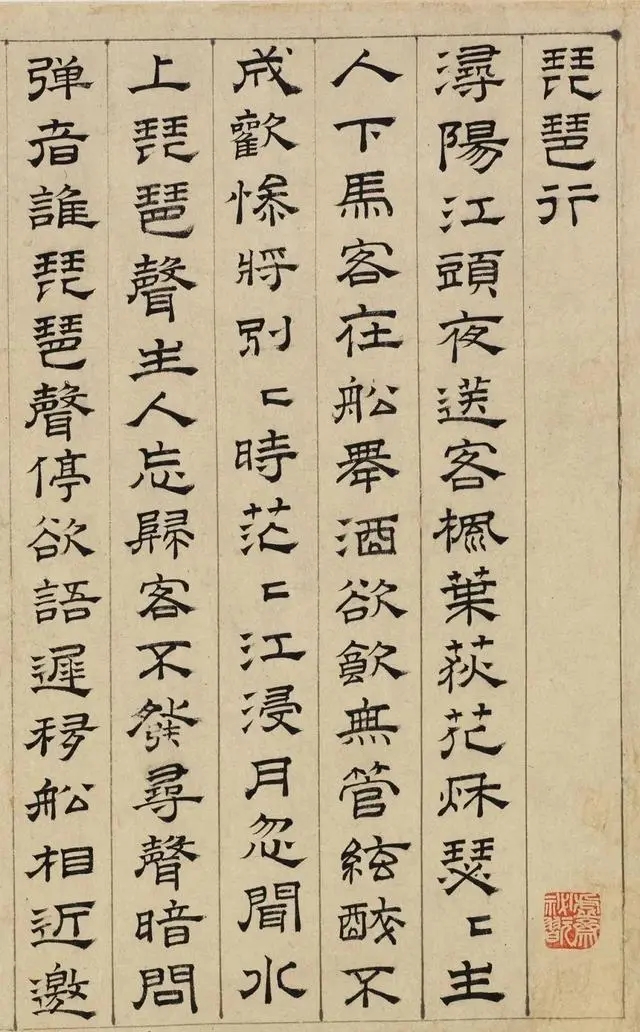 琵琶行
潯陽江頭夜送客楓葉荻花秌瑟〻主
人下馬客在船舉酒欲飲無管絃醉不
成歡慘將別〻時茫〻江浸月忽聞水
上琵琶聲主人忘歸客不發尋聲暗問
弹者誰琵琶聲停欲語遲移船相近邀